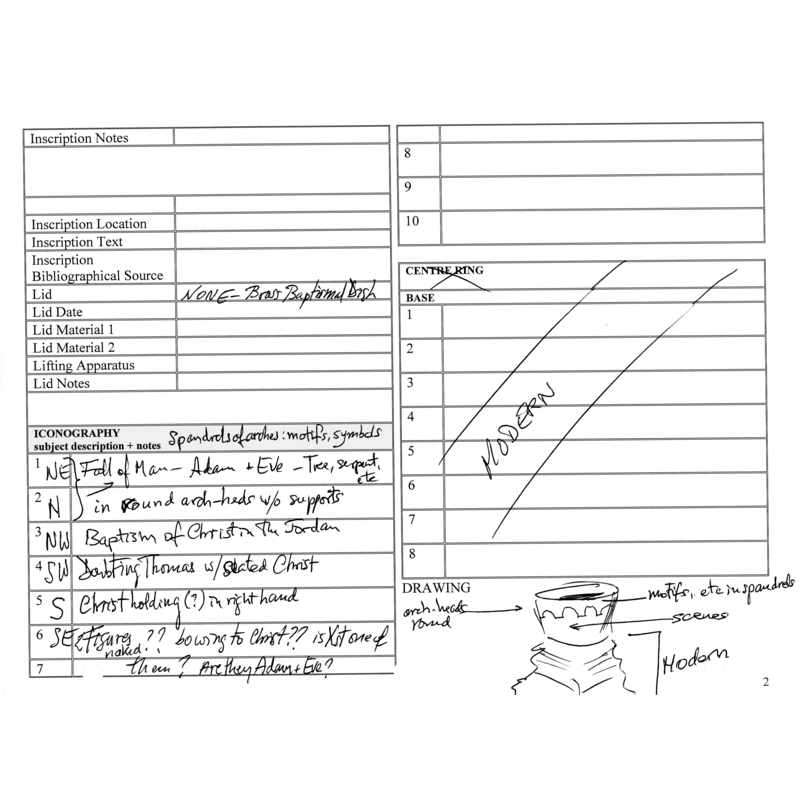 Inscription Notes
Inscription Location
Inscription Text
Inscription
Bibliographical Source
Lid NONE - Brass Baptismal Dish
Lid Date
Lid Material 1
Lid Material 2
Lifting Apparatus
Lid Notes
ICONOGRAPHY
subject description + notes Spandrels of arches: motifs, symbols
1 NE Fall of Man - Adam + Eve - Tree, serpent, etc
2 N in round arch-heds w/o supports
3 NW Baptism of Christ in the Jordan
4 SW Doubting Thomas w/ seated Christ
5 S Christ holding (?) in right hand
6 SE 2 figures ?? bowing to Christ?? is Xst one of
naked??
7 them? Are they Adam + Eve?
8
9
10
CENTRE RING
BASE
1
2
3
4
5
6
7
8
MODERN
DRAWING
arch-heads
round
motifs, etc in spandrels
scenes
Modern
2